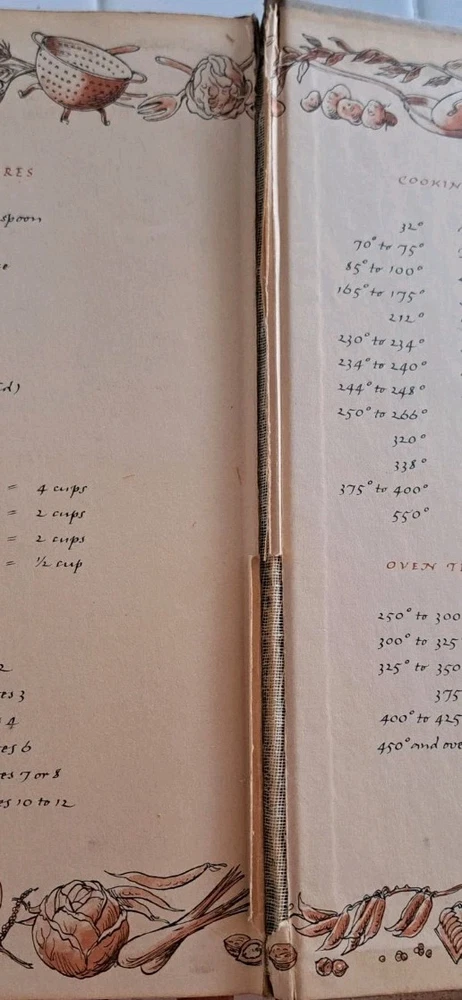 RES
spoon
= 4 cups
= 2 cups
= 2 cups
= ½ cup
2
es 3
4
es 6
es 7 or 8
es 10 to 12
COOKIN
32°
70° to 75°
85° to 100°
165° to 175°
212°
230° to 234°
234° to 240°
244° to 248°
250° to 266°
320°
338°
375° to 400°
550°
OVEN TE
250° to 300
300° to 325
325° to 350
375
400° to 425
450° and ove